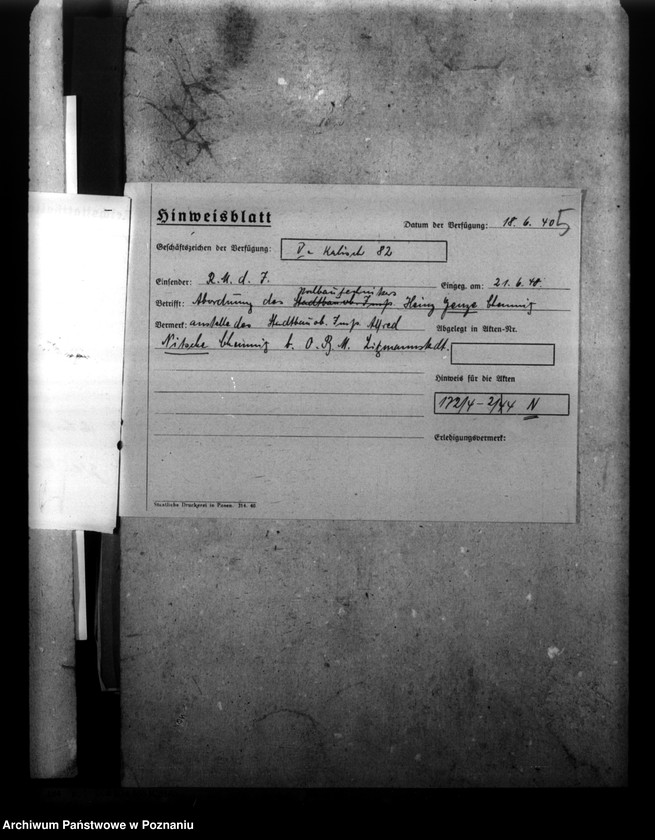 Hinweisblatt
Datum der Verfügung: 18. 6. 40
Geschäftszeichen der Verfügung: V a Kalisch 82
Einsender: R. M. d. I.
Eingeg. am: 21. 6. 40.
Betrifft: Abordnung des Stadtbauob. Insp. Heinz Chemnitz
Vermerk: anstelle des Stadtbauob. Insp. Alfred
Abgelegt in Akten-Nr.
Nitsche Chemnitz b. O. B. M. Litzmannstadt.
Hinweis für die Akten
172/4 – 2/44 N
Erledigungsvermerk:
Staatliche Druckerei in Posen.
Archiwum Państwowe w Poznaniu